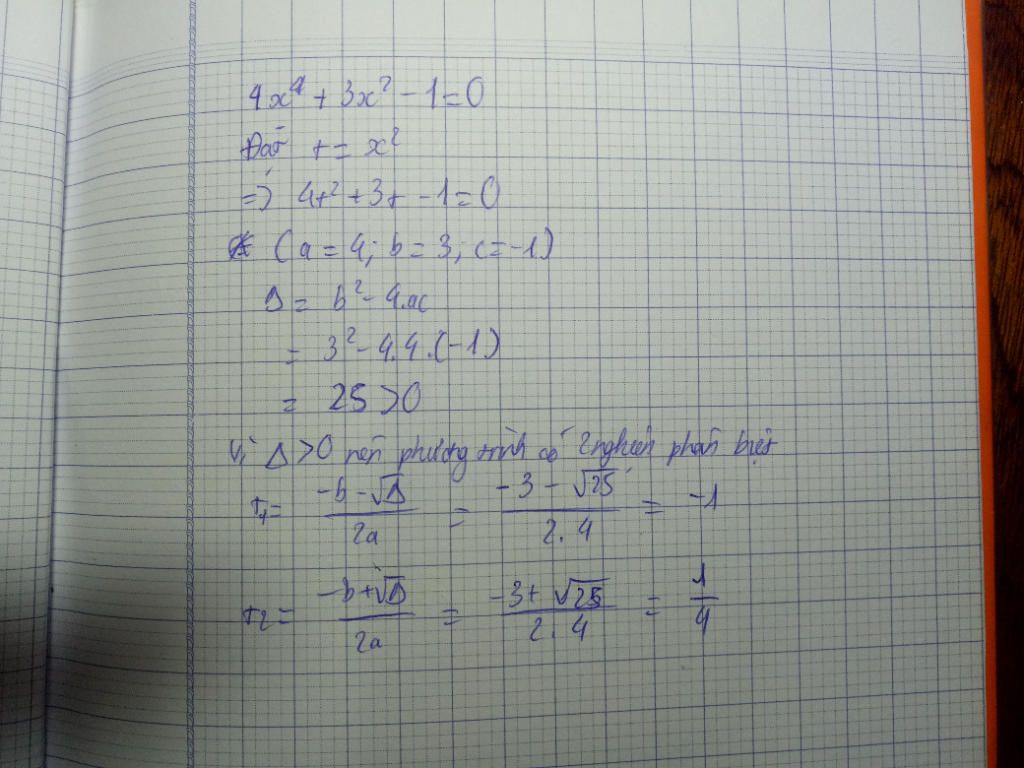 4x⁴ + 3x² - 1 = 0
Đặt t = x²
=> 4t² + 3t - 1 = 0
(a = 4; b = 3; c = -1)
Δ = b² - 4.ac
= 3² - 4.4.(-1)
= 25 > 0
Vì Δ > 0 nên phương trình có 2 nghiệm phân biệt
t₁ = (-b - √Δ)/2a = (-3 - √25)/2.4 = -1
t₂ = (-b + √Δ)/2a = (-3 + √25)/2.4 = 1/4